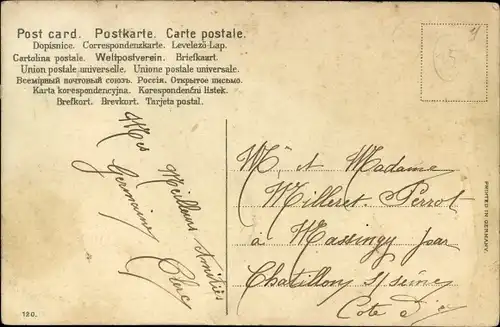 Post card. Postkarte. Carte postale.
Dopisnice. Correspondenzkarte. Levelező-Lap.
Cartolina postale. Weltpostverein. Briefkaart.
Union postale universelle. Unione postale universale.
Всемірный почтовый союзъ. Россія. Открытое письмо.
Karta korespondencyjna. Korespondenční listek.
Brefkort. Brevkort. Tarjeta postal.
Mes Meilleurs Amitiés
Germaine Clerc
Mr et Madame
Milleret-Perrot
à Massingy par
Chatillon s/ seine
Cote d'or
PRINTED IN GERMANY.
120.
5